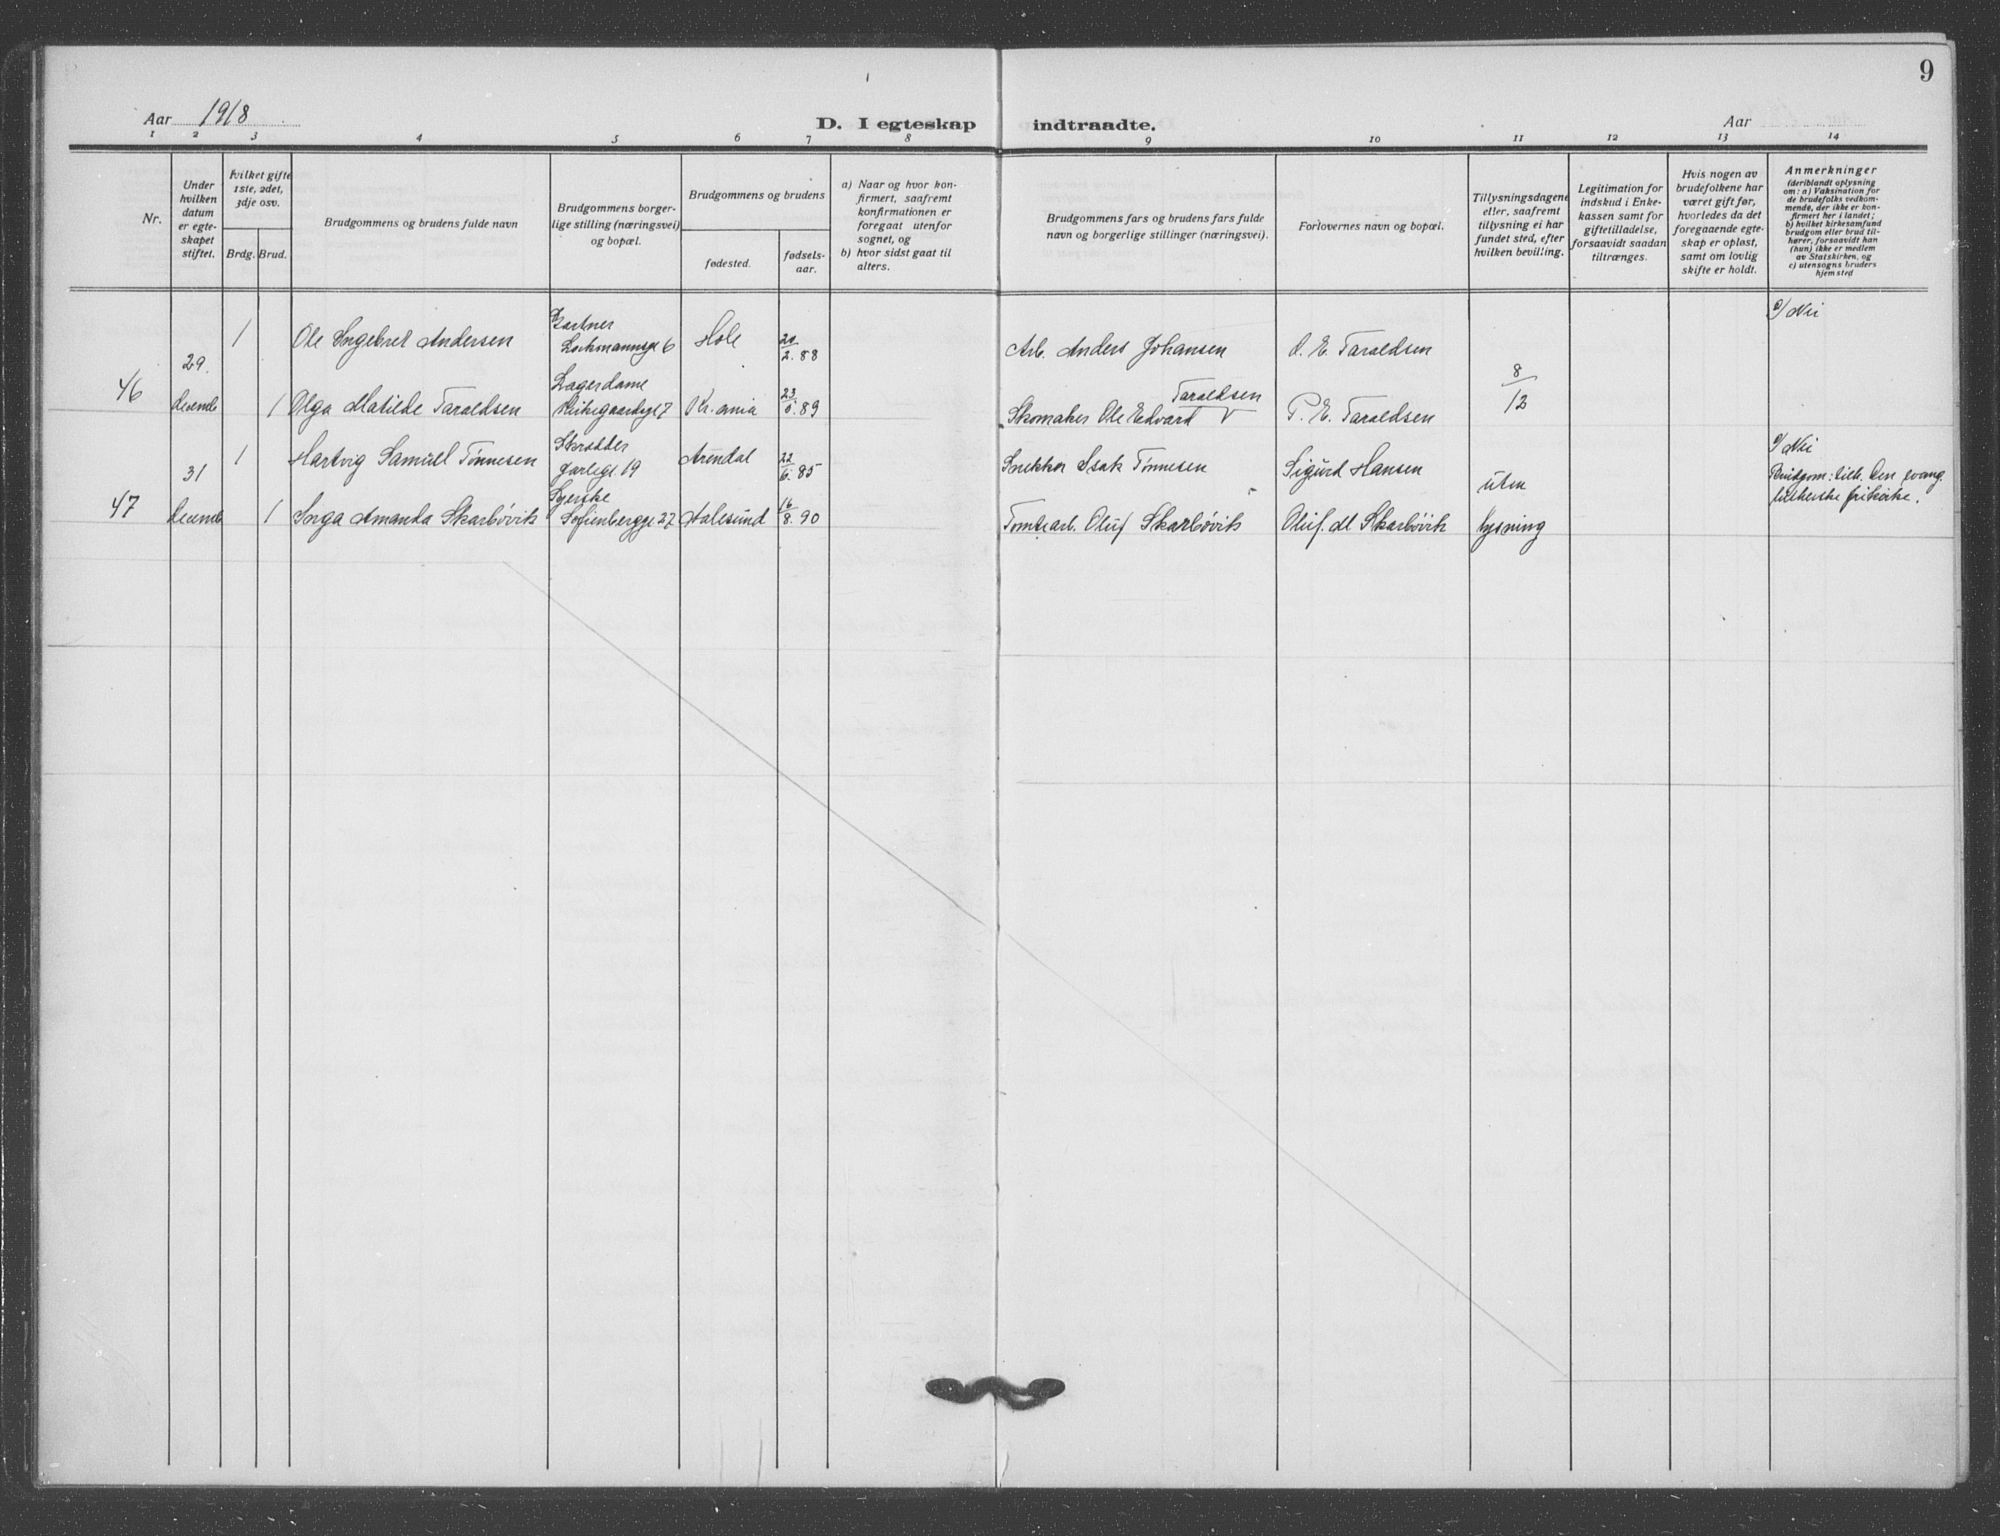 9
Aar 1918
D. I egteskap indtraadte.
Aar
1 2 3 4 5 6 7 8 9 10 11 12 13 14
Nr.
Under
hvilken
datum
er egte-
skapet
stiftet.
hvilket gifte
1ste, 2det,
3dje osv.
Brdg. Brud.
Brudgommens og brudens fulde navn
Brudgommens borger-
lige stilling (næringsvei)
og bopæl.
Brudgommens og brudens
fødested.
fødsels-
aar.
a) Naar og hvor kon-
firmert, saafremt
konfirmationen er
foregaat utenfor
sognet, og
b) hvor sidst gaat til
alters.
Brudgommens fars og brudens fars fulde
navn og borgerlige stillinger (næringsvei).
Forlovernes navn og bopæl.
Tillysningsdagene
eller, saafremt
tillysning ei har
fundet sted, efter
hvilken bevilling.
Legitimation for
indskud i Enke-
kassen samt for
giftetilladelse,
forsaavidt saadan
tiltrænges.
Hvis nogen av
brudefolkene har
været gift før,
hvorledes da det
foregaaende egte-
skap er opløst,
samt om lovlig
skifte er holdt.
Anmerkninger
(deriblandt oplysning
om: a) Vaksination for
de brudefolks vedkom-
mende, der ikke er kon-
firmert her i landet;
b) hvilket kirkesamfund
brudgom eller brud til-
hører, forsaavidt han
(hun) ikke er medlem
av Statskirken, og
c) utensogns bruders
hjemsted
46
29.
decemb
1 Ole Ingebret Andersen
Gartner
6
Hole
20/2.88
Arb. Anders Johansen
O. E. Taraldsen
8/12
c/ Nei
1 Olga Matilde Taraldsen
Lagerdame
Kirkegaardsgt 7
Kr.ania
23/5.89
Taraldsen
Skomaker Ole Edvard V
P. E. Taraldsen
47
31
decemb
1 Hartvig Samuel Tønnesen
Skrædder
Jarlegt 19
Arendal
22/6.85
Isak Tønnesen
Sigurd Hansen
uten
lysning
c/ Nei
Brudgom: tilh. Den evang.
lutherske frikirke.
1 Inga Amanda Skarbøvik
Syerske
Sofienberggt 27
Aalesund
16/8.90
Tomtearb. Oluf Skarbøvik
Oluf. M Skarbøvik